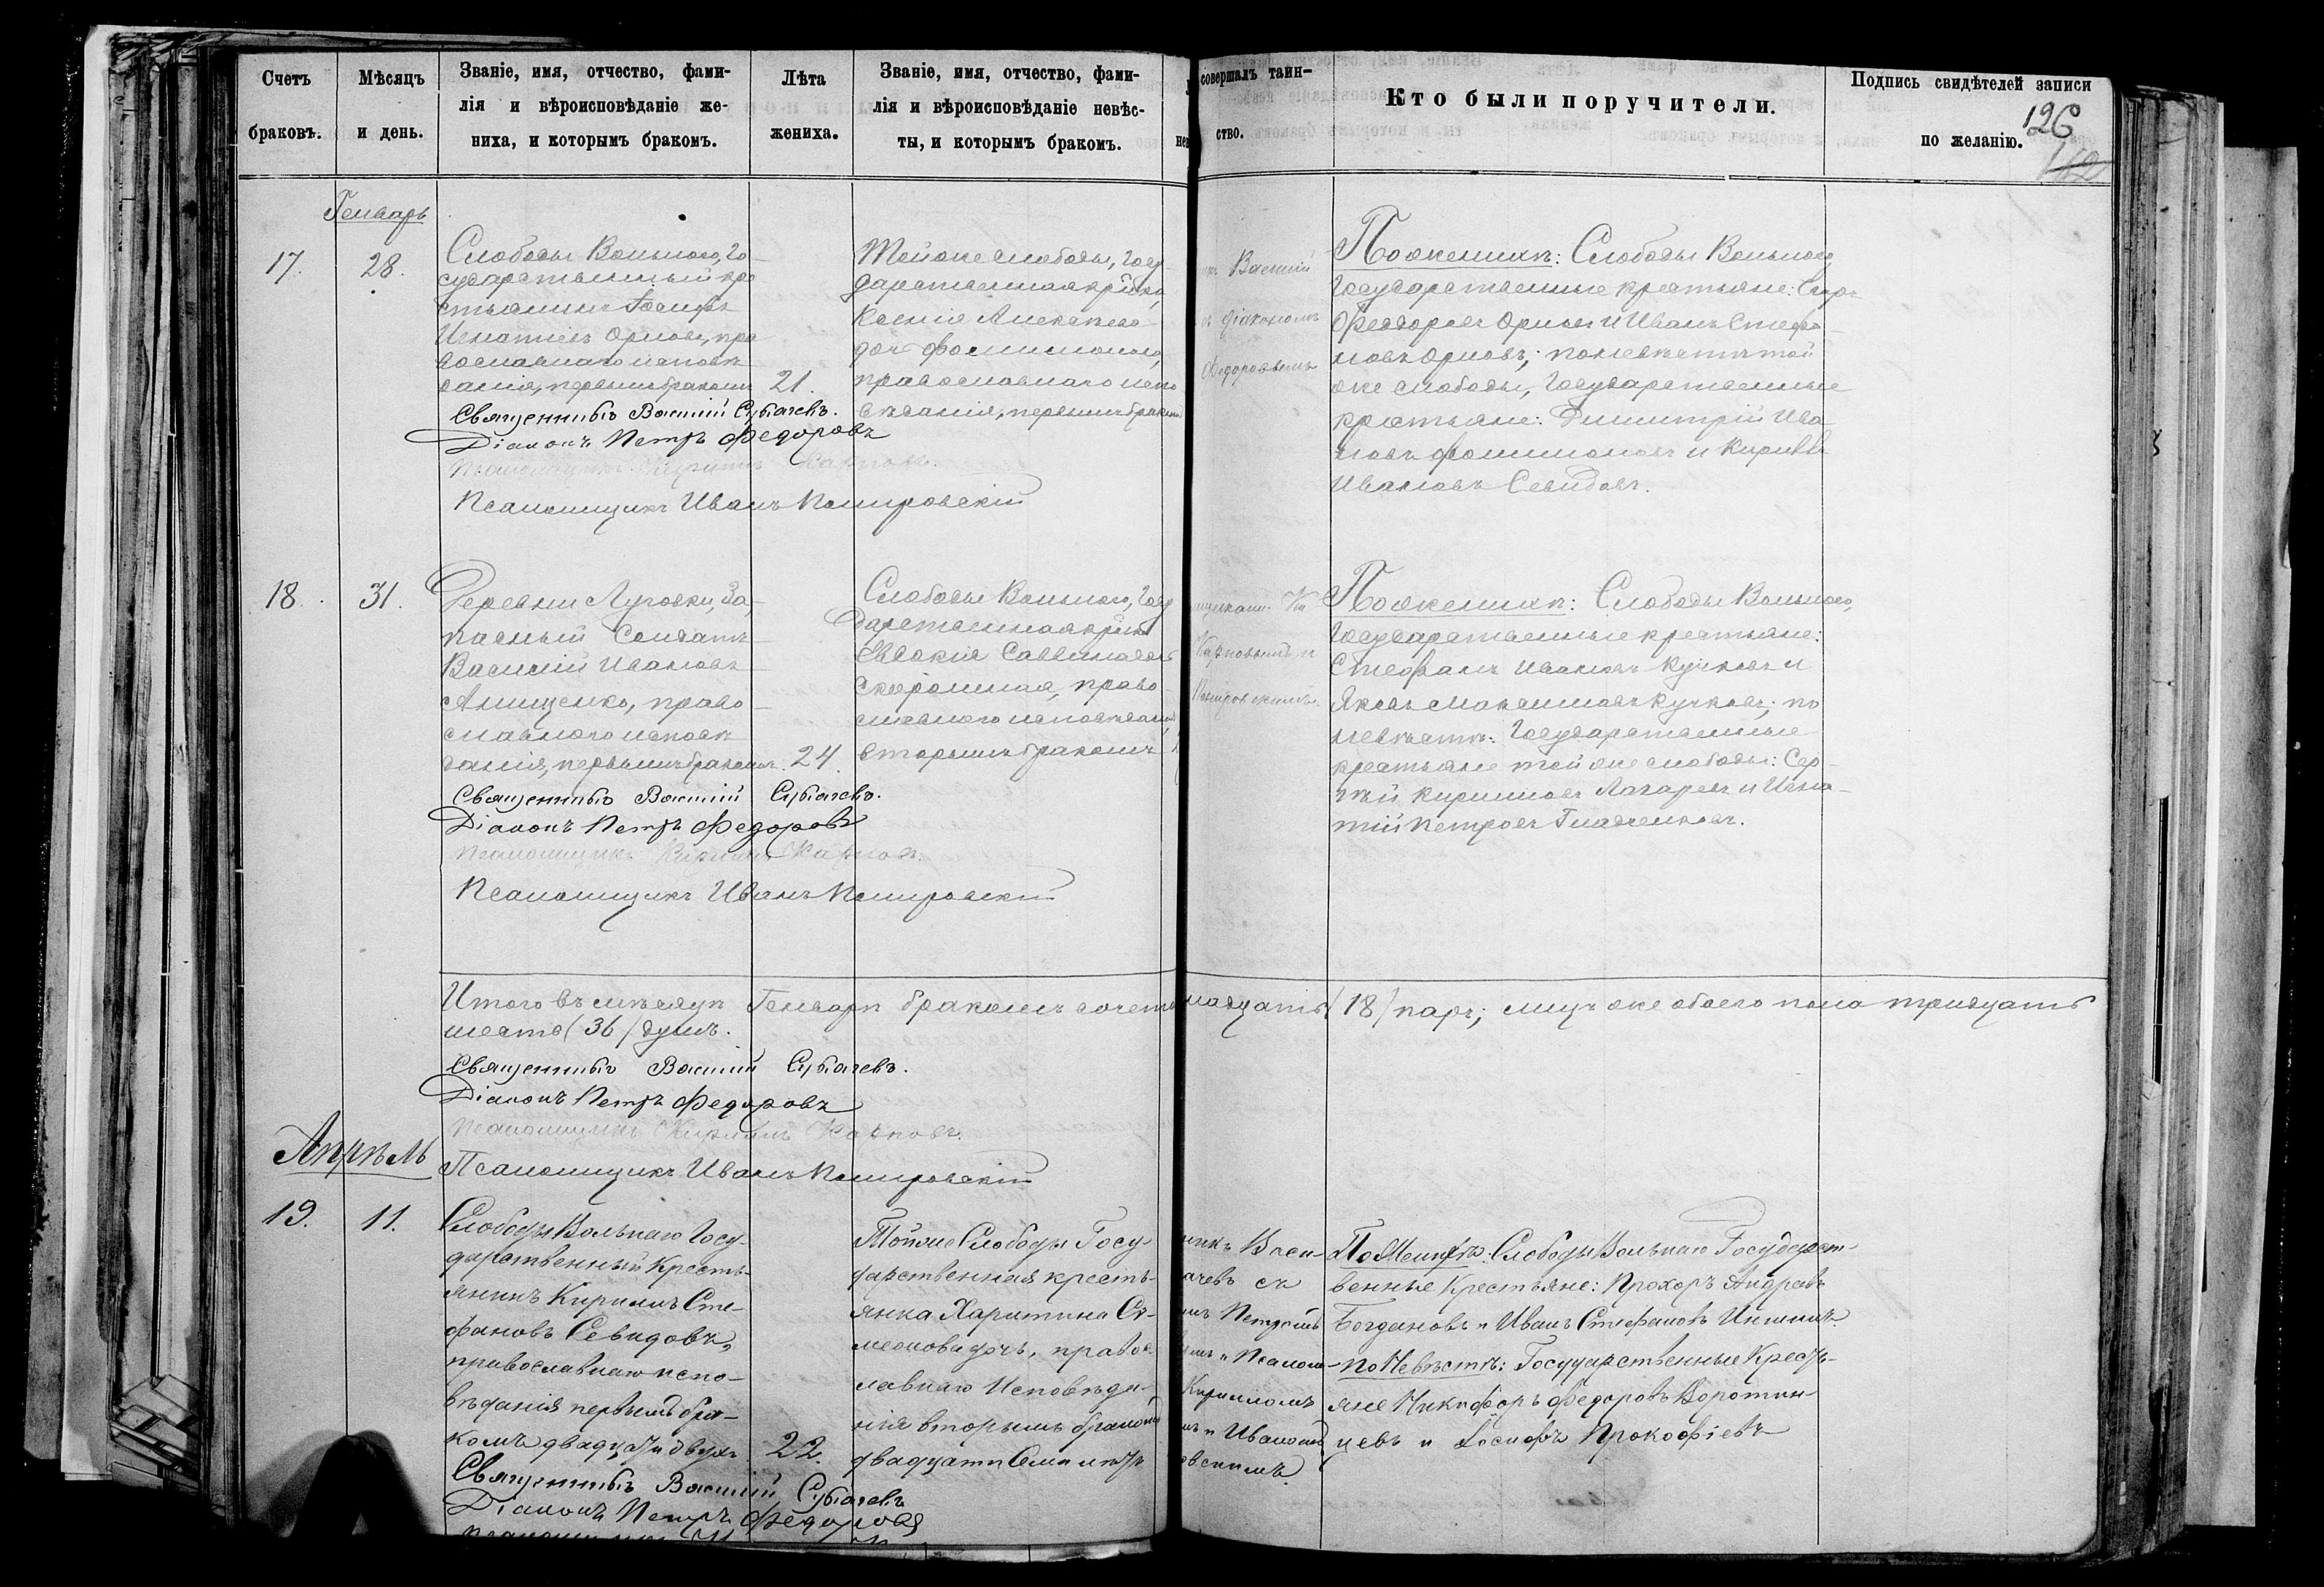 Счетъ браковъ.
Мѣсяцъ и день.
Званіе, имя, отчество, фами-
лія и вѣроисповѣданіе же-
ниха, и которымъ бракомъ.
Лѣта жениха.
Званіе, имя, отчество, фами-
лія и вѣроисповѣданіе невѣс-
ты, и которымъ бракомъ.
совершалъ таин-
ство.
Кто были поручители.
Подпись свидѣтелей записи
по желанію.
126
Генварь
17.
28.
Слободы Вольнаго, Го-
сударственный кре
стьянинъ Іосифъ
Игнатіевъ Орловъ, пра
вославнаго исповѣ
данія, первымъ бракомъ
21.
Тойже слободы, Госу-
дарственная
Ксенія Алексѣева
дочь
православнаго испо
вѣданія, первымъ бракомъ
Василій
діакономъ
Федоровымъ
По женихѣ: Слободы Вольнаго,
Государственные крестьяне:
Феодоровъ Орловъ и Иванъ Стефа-
новъ Орловъ; по невѣстѣ той
же слободы, Государственные
крестьяне: Димитрій Ива-
новъ и Кириллъ
Ивановъ Севидовъ.
Священникъ Василій Субачевъ.
Діаконъ Петръ Федоровъ
Псаломщикъ Кириллъ Карповъ.
Псаломщикъ Иванъ
18.
31.
Деревни Луговки, За-
пасный Солдатъ
Василій Ивановъ
Анищенко, право-
славнаго исповѣ
данія, первымъ бракомъ.
24.
Слободы Вольнаго, Госу
дарственная
Евдокія Саввинова
право-
славнаго исповѣданія
вторымъ бракомъ
Карповымъ и
По женихѣ: Слободы Вольнаго,
Государственные крестьяне:
Стефанъ Ивановъ Кучковъ и
Яковъ Кучковъ; по
невѣстѣ: Государственные
крестьяне той же слободы: Сер-
гѣй Кирилловъ Лазаревъ и Игна-
тій Петровъ Гладченковъ.
Священникъ Василій Субачевъ.
Діаконъ Петръ Федоровъ
Псаломщикъ Кириллъ Карповъ.
Псаломщикъ Иванъ
Итого въ мѣсяцѣ Генварѣ бракомъ
надцать (18) паръ; лицъ же обоего пола тридцать
шесть (36) душъ.
Священникъ Василій Субачевъ.
Діаконъ Петръ Федоровъ
Псаломщикъ Кириллъ Карповъ.
Псаломщикъ Иванъ
Апрѣль
19.
11.
Слободы Вольнаго Госу-
дарственный Кресть-
янинъ Кириллъ Сте-
фановъ Севидовъ,
православнаго испо-
вѣданія первымъ бра-
комъ двадцати двухъ
22.
Тойже Слободы Госу-
дарственная кресть-
янка Харитина Си-
меонова дочь, правос-
лавнаго Исповѣда-
нія вторымъ бракомъ
двадцати Семи лѣтъ
Васи-
ачевъ съ
Петромъ
и Псалом-
Кирилломъ
и Иваномъ
овскимъ
По Женихѣ: Слободы Вольнаго Государст-
венные Крестьяне: Прохоръ Андреевъ
Богдановъ и Иванъ Стефановъ
по Невѣстѣ: Государственные Кресть-
яне Никифоръ Федоровъ Воротын-
цевъ и Іосифъ Прокофіевъ
Священникъ Василій Субачевъ
Діаконъ Петръ Федоровъ